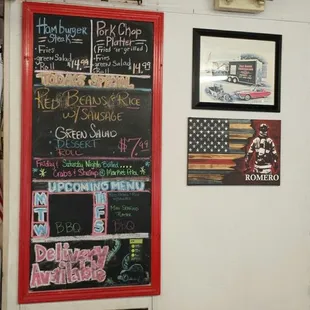 Hamburger
Steak
Fries
green Salad
Roll
$14.99
Pork Chop
Platter
(Fried n' grilled)
Fries
green Salad
Roll
14.99
TODAY'S SPECIAL
Red Beans & Rice
w/ Sausage
Green Salad
Dessert
Roll
$7.99
Friday & Saturday Nights Boiled
Crabs & Shrimp @ Market
UPCOMING MENU
M
T
W
BBQ
BBQ
Delivery
Available
ROMERO